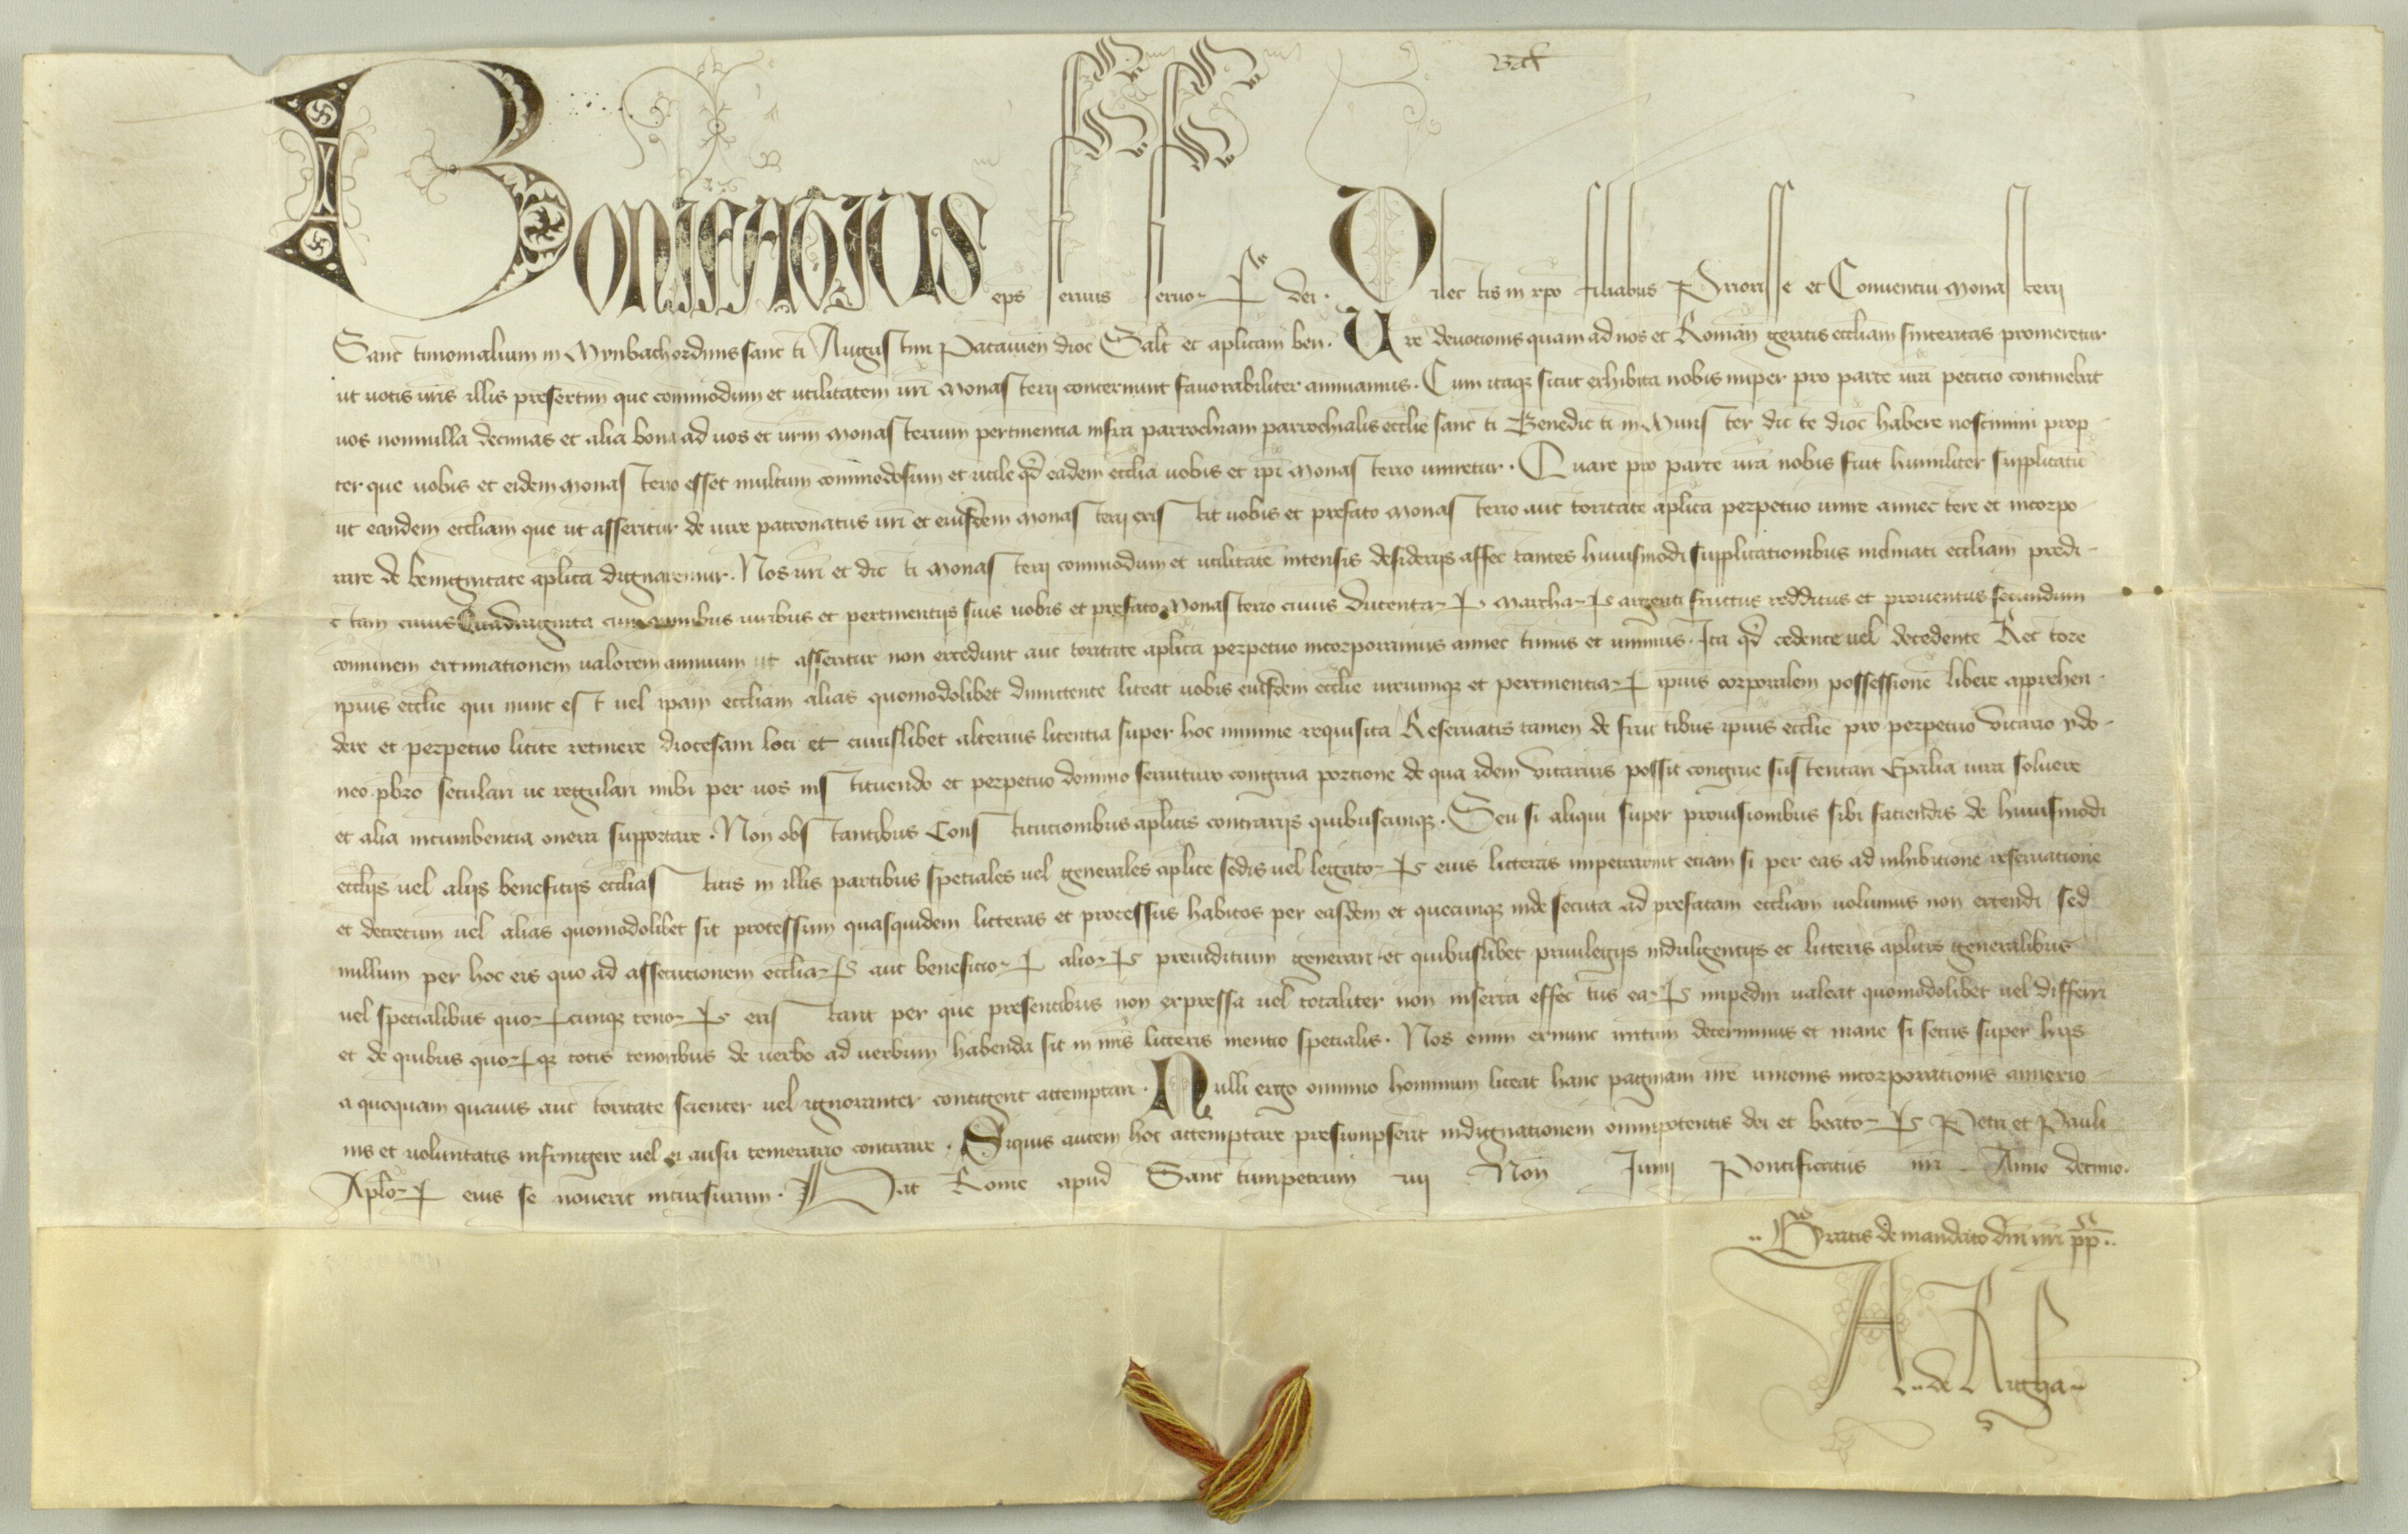 Bonifatius eps seruus seruor dei. Dilectis in xpo filiabus Priorisse et Conuentui Monasterii
Sanctimonialium in Mynbach ordinis sancti Augustini Patauien dioc Salt et aplicam ben. Vre deuotionis quam ad nos et Roman geritis eccliam sinceritas promeretur
ut uotis uris illis presertim que commodum et utilitatem uri Monasterii concernunt fauorabiliter annuamus. Cum itaq sicut exhibita nobis nuper pro parte ura petitio continebat
uos nonnulla decimas et alia bona ad uos et urm Monasterium pertinentia infra parrochiam parrochialis ecclie sancti Benedicti in Munster dicte dioc habere noscimini prop
ter que uobis et eidem Monasterio esset multum commodosum et utile qd eadem ecclia uobis et ipi Monasterio uniretur. Quare pro parte ura nobis fuit humiliter supplicatu
ut eandem eccliam que ut asseritur de iure patronatus uri et eiusdem Monasterii existit uobis et prefato Monasterio auctoritate aplica perpetuo unire annectere et incorpo
rare de benignitate aplica dignaremur. Nos uri et dicti Monasterii commodum et utilitate intensis desideriis affectantes huiusmodi supplicationibus inclinati eccliam predi
ctam cuius Quadraginta cum omnibus iuribus et pertinentiis suis uobis et prefato Monasterio cuius Ducentar Marchar argenti fructus redditus et prouentus secundum
communem extimationem ualorem annuum ut asseritur non excedunt auctoritate aplica perpetuo incorporamus annectimus et unimus. Ita qd cedente uel decedente Rectore
ipius ecclie qui nunc est uel ipam eccliam alias quomodolibet dimittente liceat uobis eiusdem ecclie iuriumq et pertinentiar ipius corporalem possessione libere apprehen
dere et perpetuo licite retinere diocesani loci et cuiuslibet alterius licentia super hoc minime requisita Reseruatis tamen de fructibus ipius ecclie pro perpetuo vicario ydo
neo pbro seculari ue regulari inibi per uos instituendo et perpetuo domino seruituro congrua portione de qua idem vicarius possit congrue sustentari Epalia iura soluere
et alia incumbentia onera supportare. Non obstantibus Constitutionibus aplicis contrariis quibuscunq. Seu si aliqui super prouisionibus sibi faciendis de huiusmodi
eccliis uel aliis beneficiis eccliasticis in illis partibus speciales uel generales aplice sedis uel legator eius litteras impetrarint etiam si per eas ad inhibitione reseruatione
et decretum uel alias quomodolibet sit processum quasquidem litteras et processus habitos per easdem et quecunq inde secuta ad prefatam eccliam uolumus non extendi sed
nullum per hoc eis quo ad assecutionem eccliar aut beneficior alior preiudicium generari et quibuslibet priuilegiis indulgentiis et litteris aplicis generalibus
uel specialibus quorcunq tenor existant per que presentibus non expressa uel totaliter non inserta effectus ear impediri ualeat quomodolibet uel differri
et de quibus quorq totis tenoribus de uerbo ad uerbum habenda sit in nris litteris mentio specialis. Nos enim exnunc irritum decernimus et inane si secus super hiis
a quoquam quauis auctoritate scienter uel ignoranter contigerit attemptari. Nulli ergo omnino hominum liceat hanc paginam nre unionis incorporationis annexio
nis et uoluntatis infringere uel ei ausu temerario contraire. Siquis autem hoc attemptare presumpserit indignationem omnipotentis dei et beator Petri et Pauli
Aplor eius se nouerit incursurum. Dat Rome apud Sanctumpetrum iiij Non Junii Pontificatus nri Anno decimo.
.. Gratis de mandato dni nri pp ..
A.. de Rugha..